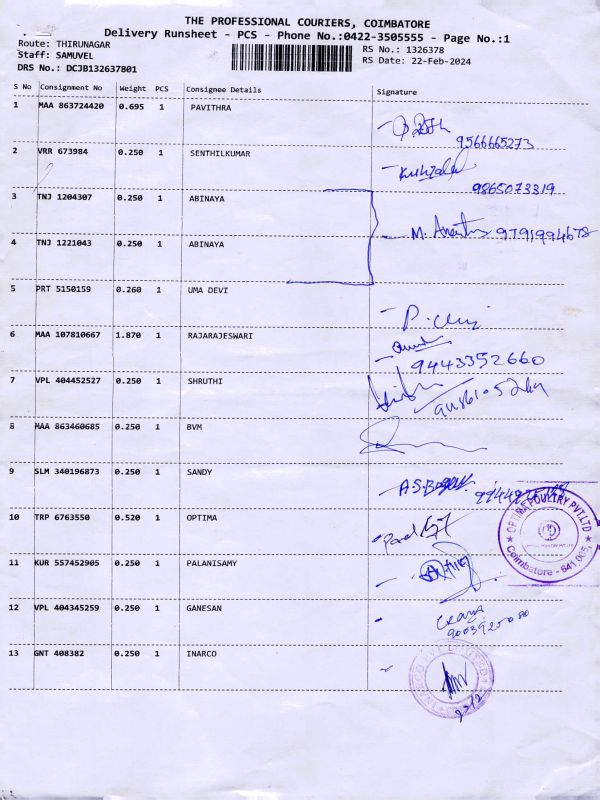 THE PROFESSIONAL COURIERS, COIMBATORE
Delivery Runsheet - PCS - Phone No.:0422-3505555 - Page No.:1
Route: THIRUNAGAR
RS No.: 1326378
Staff: SAMUVEL
RS Date: 22-Feb-2024
DRS No.: DCJB132637801
S No Consignment No Weight PCS Consignee Details Signature
1 MAA 863724420 0.695 1 PAVITHRA
9566665273
2 VRR 673984 0.250 1 SENTHILKUMAR
9865073319
3 TNJ 1204307 0.250 1 ABINAYA
M. 9791994678
4 TNJ 1221043 0.250 1 ABINAYA
5 PRT 5150159 0.260 1 UMA DEVI
6 MAA 107810667 1.870 1 RAJARAJESWARI
9443352660
7 VPL 404452527 0.250 1 SHRUTHI
8 MAA 863460685 0.250 1 BVM
9 SLM 340196873 0.250 1 SANDY
A.S.
10 TRP 6763550 0.520 1 OPTIMA
OPTIMA POULTRY PVT.LTD
Coimbatore - 641 005.
11 KUR 557452905 0.250 1 PALANISAMY
12 VPL 404345259 0.250 1 GANESAN
9003925080
13 GNT 408382 0.250 1 INARCO
22/2